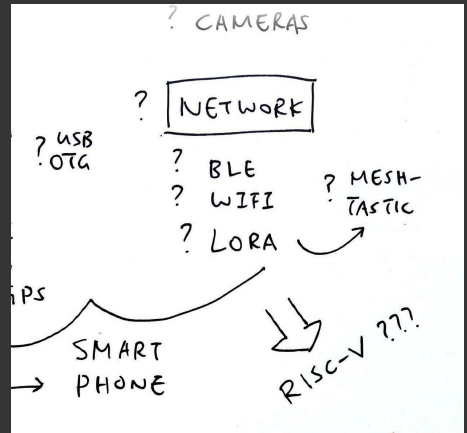 ? CAMERAS
? NETWORK
? USB
OTG
? BLE
? WIFI
? LORA
? MESH-
TASTIC
PS
SMART
→ PHONE
RISC-V ???